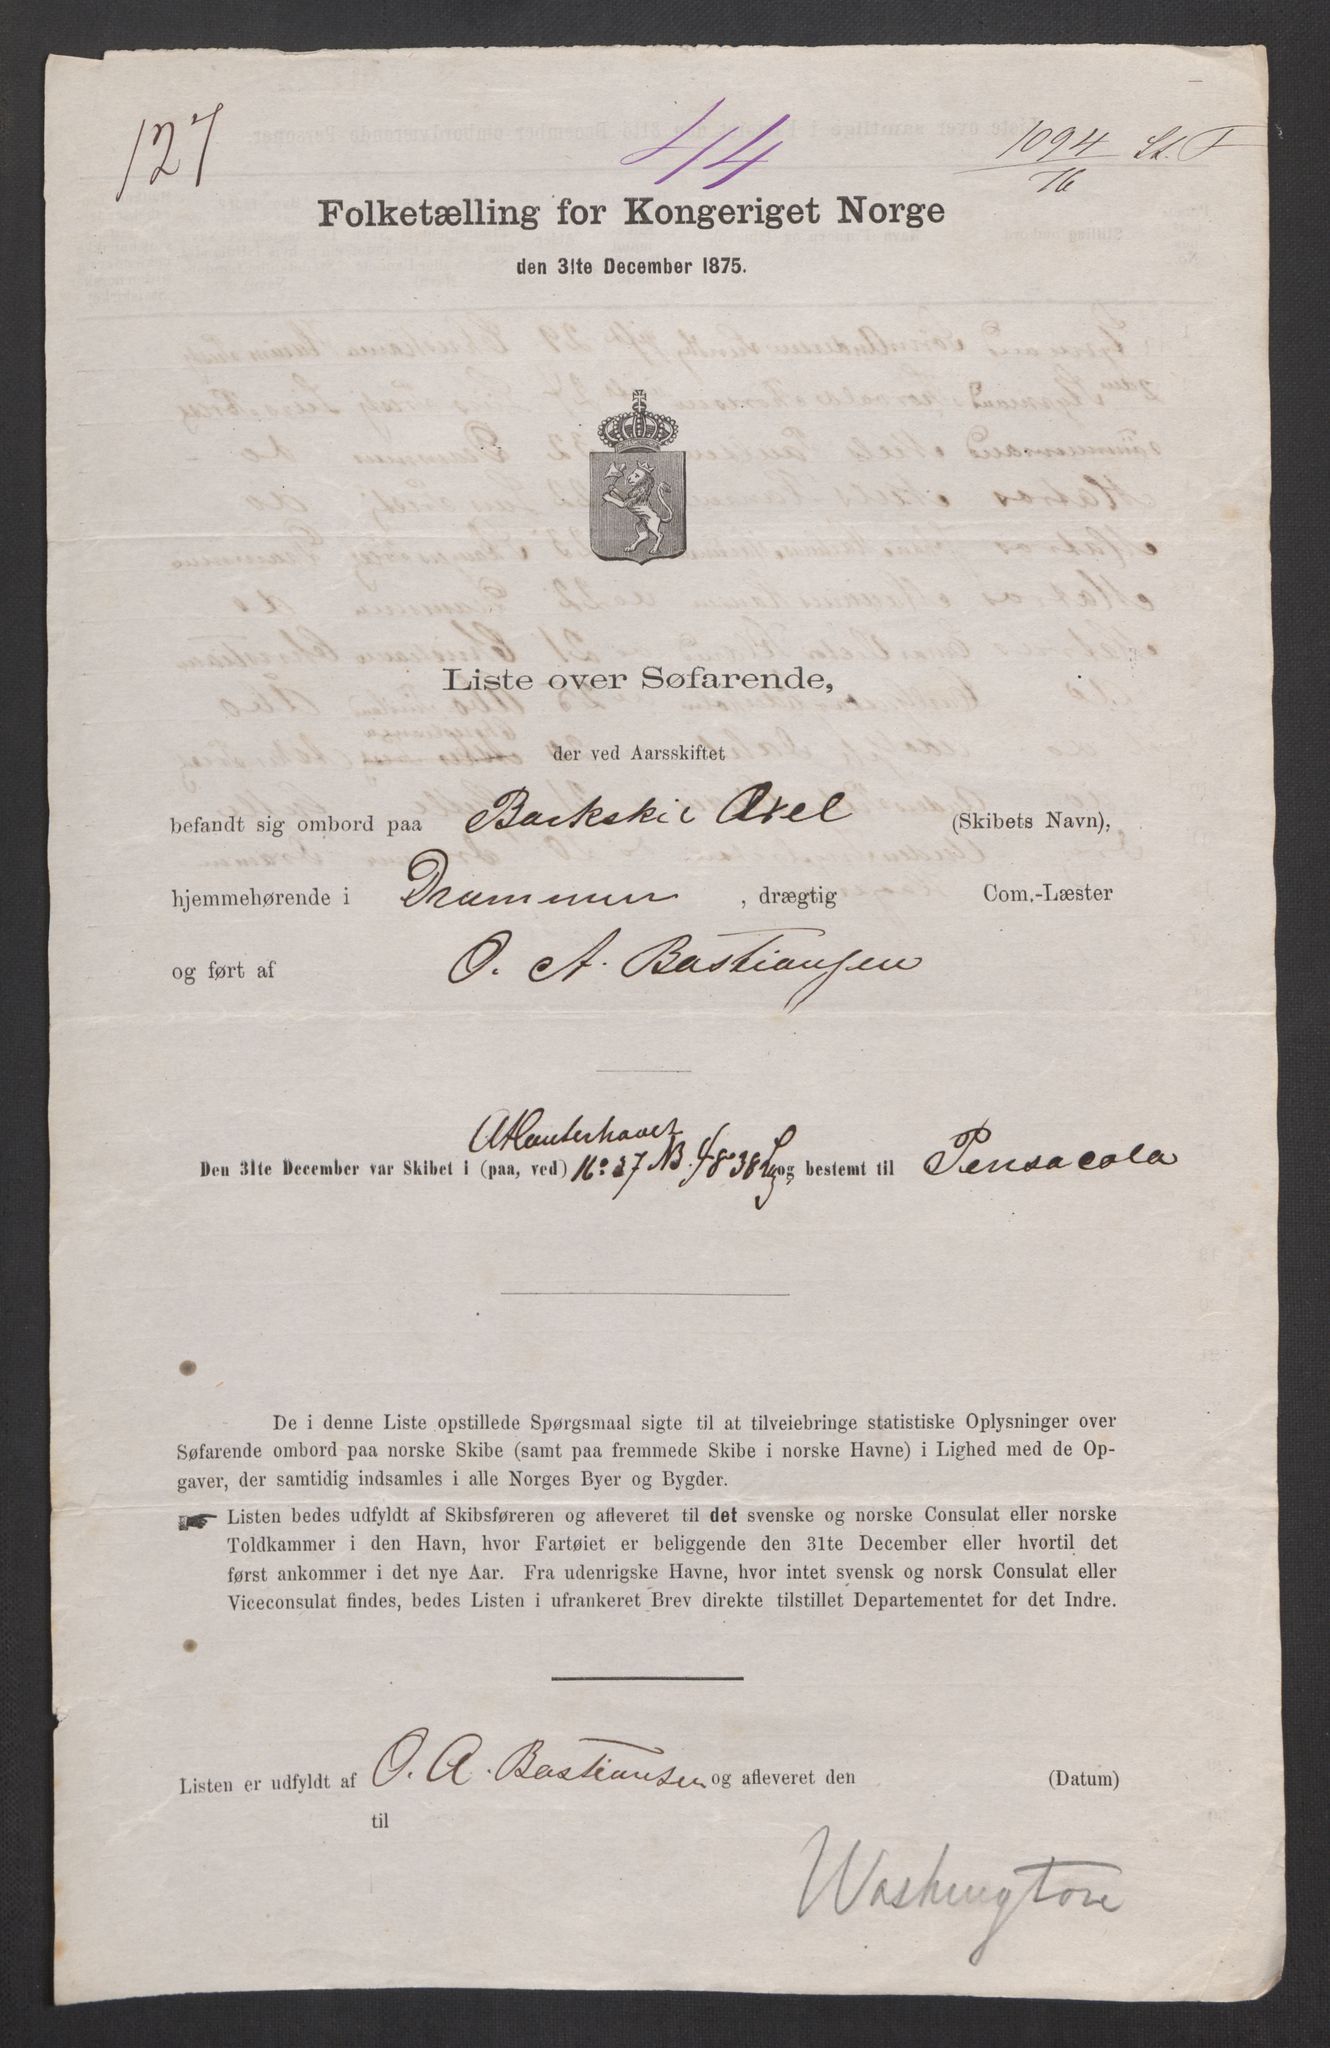 127
44
1094 St. F
16
Folketælling for Kongeriget Norge
den 31te December 1875.
Liste over Søfarende,
der ved Aarsskiftet
befandt sig ombord paa Barkskib Axel (Skibets Navn),
hjemmehørende i Drammen, drægtig Com.-Læster
og ført af O. A. Bastiansen
Atlanterhavet
Den 31te December var Skibet i (paa, ved) 16° 37 NB. 48° 38 Lg og bestemt til Pensacola
De i denne Liste opstillede Spørgsmaal sigte til at tilveiebringe statistiske Oplysninger over
Søfarende ombord paa norske Skibe (samt paa fremmede Skibe i norske Havne) i Lighed med de Op-
gaver, der samtidig indsamles i alle Norges Byer og Bygder.
Listen bedes udfyldt af Skibsføreren og afleveret til det svenske og norske Consulat eller norske
Toldkammer i den Havn, hvor Fartøiet er beliggende den 31te December eller hvortil det
først ankommer i det nye Aar. Fra udenrigske Havne, hvor intet svensk og norsk Consulat eller
Viceconsulat findes, bedes Listen i ufrankeret Brev direkte tilstillet Departementet for det Indre.
Listen er udfyldt af O. A. Bastiansen og afleveret den (Datum)
til
Washington